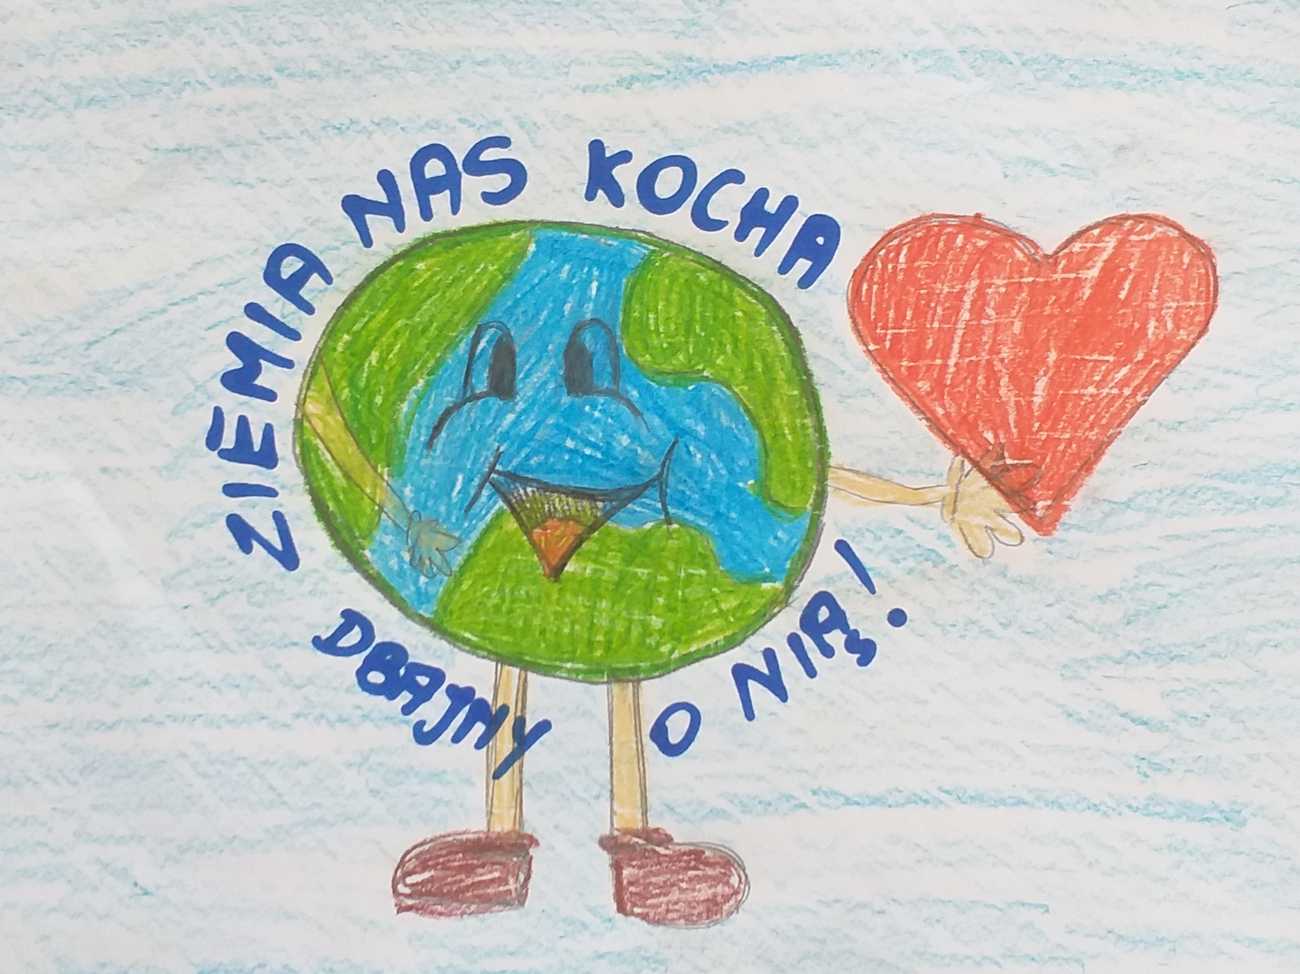 ZIEMIA NAS KOCHA
DBAJMY O NIĄ!